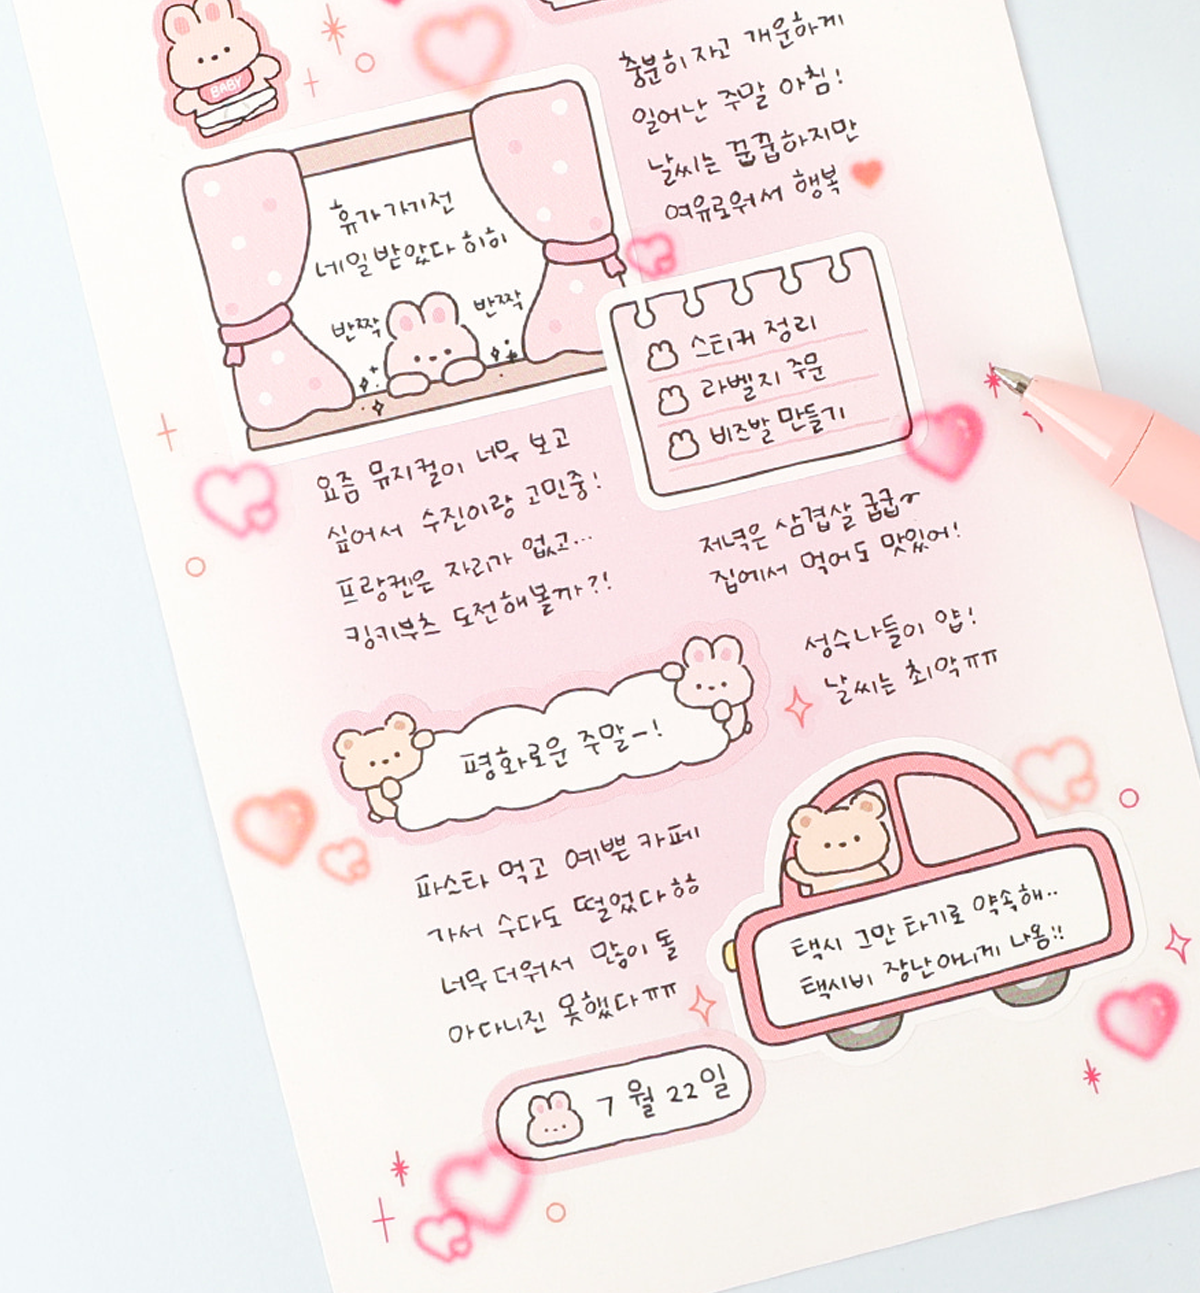 BABY
충분히 자고 개운하게
일어난 주말 아침!
날씨는 꿉꿉하지만
여유로워서 행복
휴가 가기전
네일 받았다 히히
반짝
반짝
스티커 정리
라벨지 주문
비즈발 만들기
요즘 뮤지컬이 너무 보고
싶어서 수진이랑 고민중!
프랑켄은 자리가 없고...
킹키부츠 도전해볼까?!
저녁은 삼겹살 굽굽~
집에서 먹어도 맛있어!
성수나들이 얍!
날씨는 최악ㅠㅠ
평화로운 주말~!
파스타 먹고 예쁜 카페
가서 수다도 떨었다 ㅎㅎ
너무 더워서 많이 돌
아다니진 못했다ㅠㅠ
택시 그만 타기로 약속해..
택시비 장난아니게 나옴!!
7월 22일